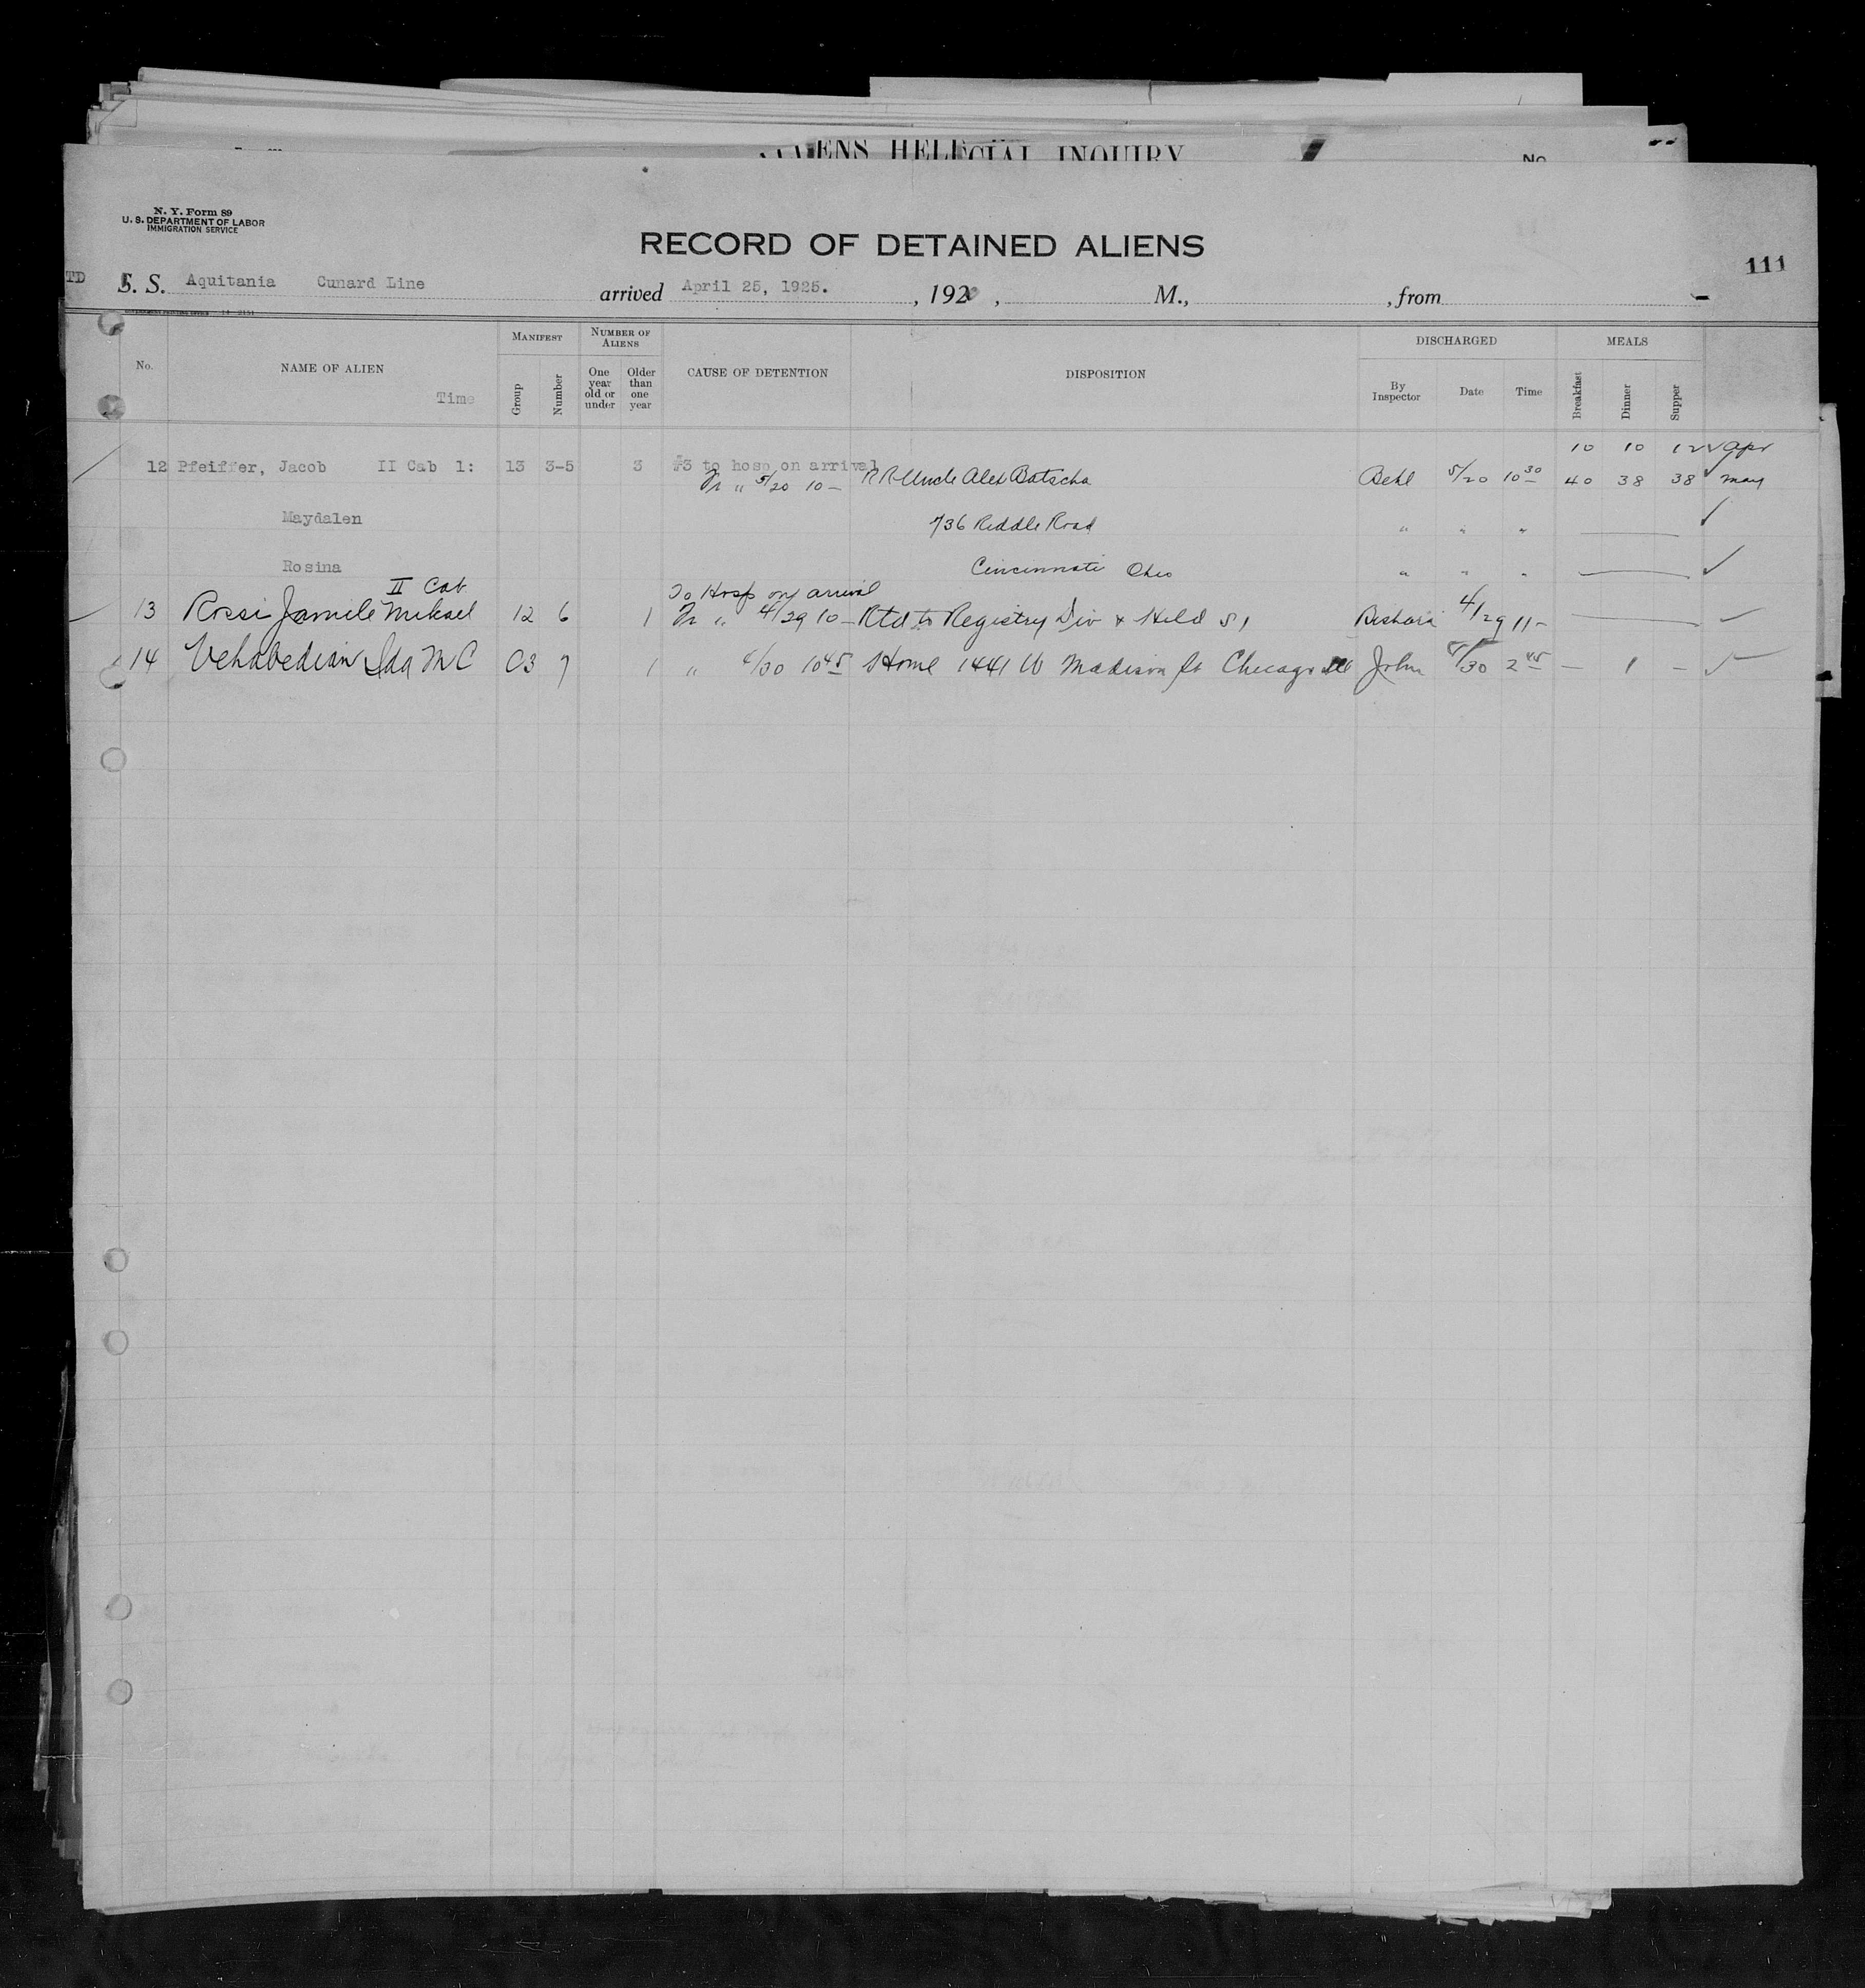 INQUIRY
No
N. Y. Form 89
U. S. DEPARTMENT OF LABOR
IMMIGRATION SERVICE
RECORD OF DETAINED ALIENS
111
TD S. S. Aquitania Cunard Line arrived April 25, 1925. , 192 , M., , from
No. NAME OF ALIEN Time MANIFEST Group Number NUMBER OF ALIENS One year old or under Older than one year CAUSE OF DETENTION DISPOSITION DISCHARGED By Inspector Date Time MEALS Breakfast Dinner Supper
10 10 12 ✓ Apr
12 Pfeiffer, Jacob II Cab 1: 13 3-5 3 #3 to hosp on arrival
Fr " 5/20 10 – RR Uncle Alex Batscha Behl 5/20 10 30 40 38 38 ✓ May
Maydalen 736 Riddle Road " " " — ✓
Rosina Cincinnati Ohio " " " — ✓
II Cab To Hosp on arrival
13 Rossi Jamile Mikael 12 6 1 Fr " 4/29 10 – Rtd to Registry Div & Held S I Beshara 4/29 11 – — ✓
14 Vehabedian Ida M C 03 7 1 " 4/30 10 45 Home 1441 W Madison St Chicago Ill John /30 2 45 — 1 – ✓